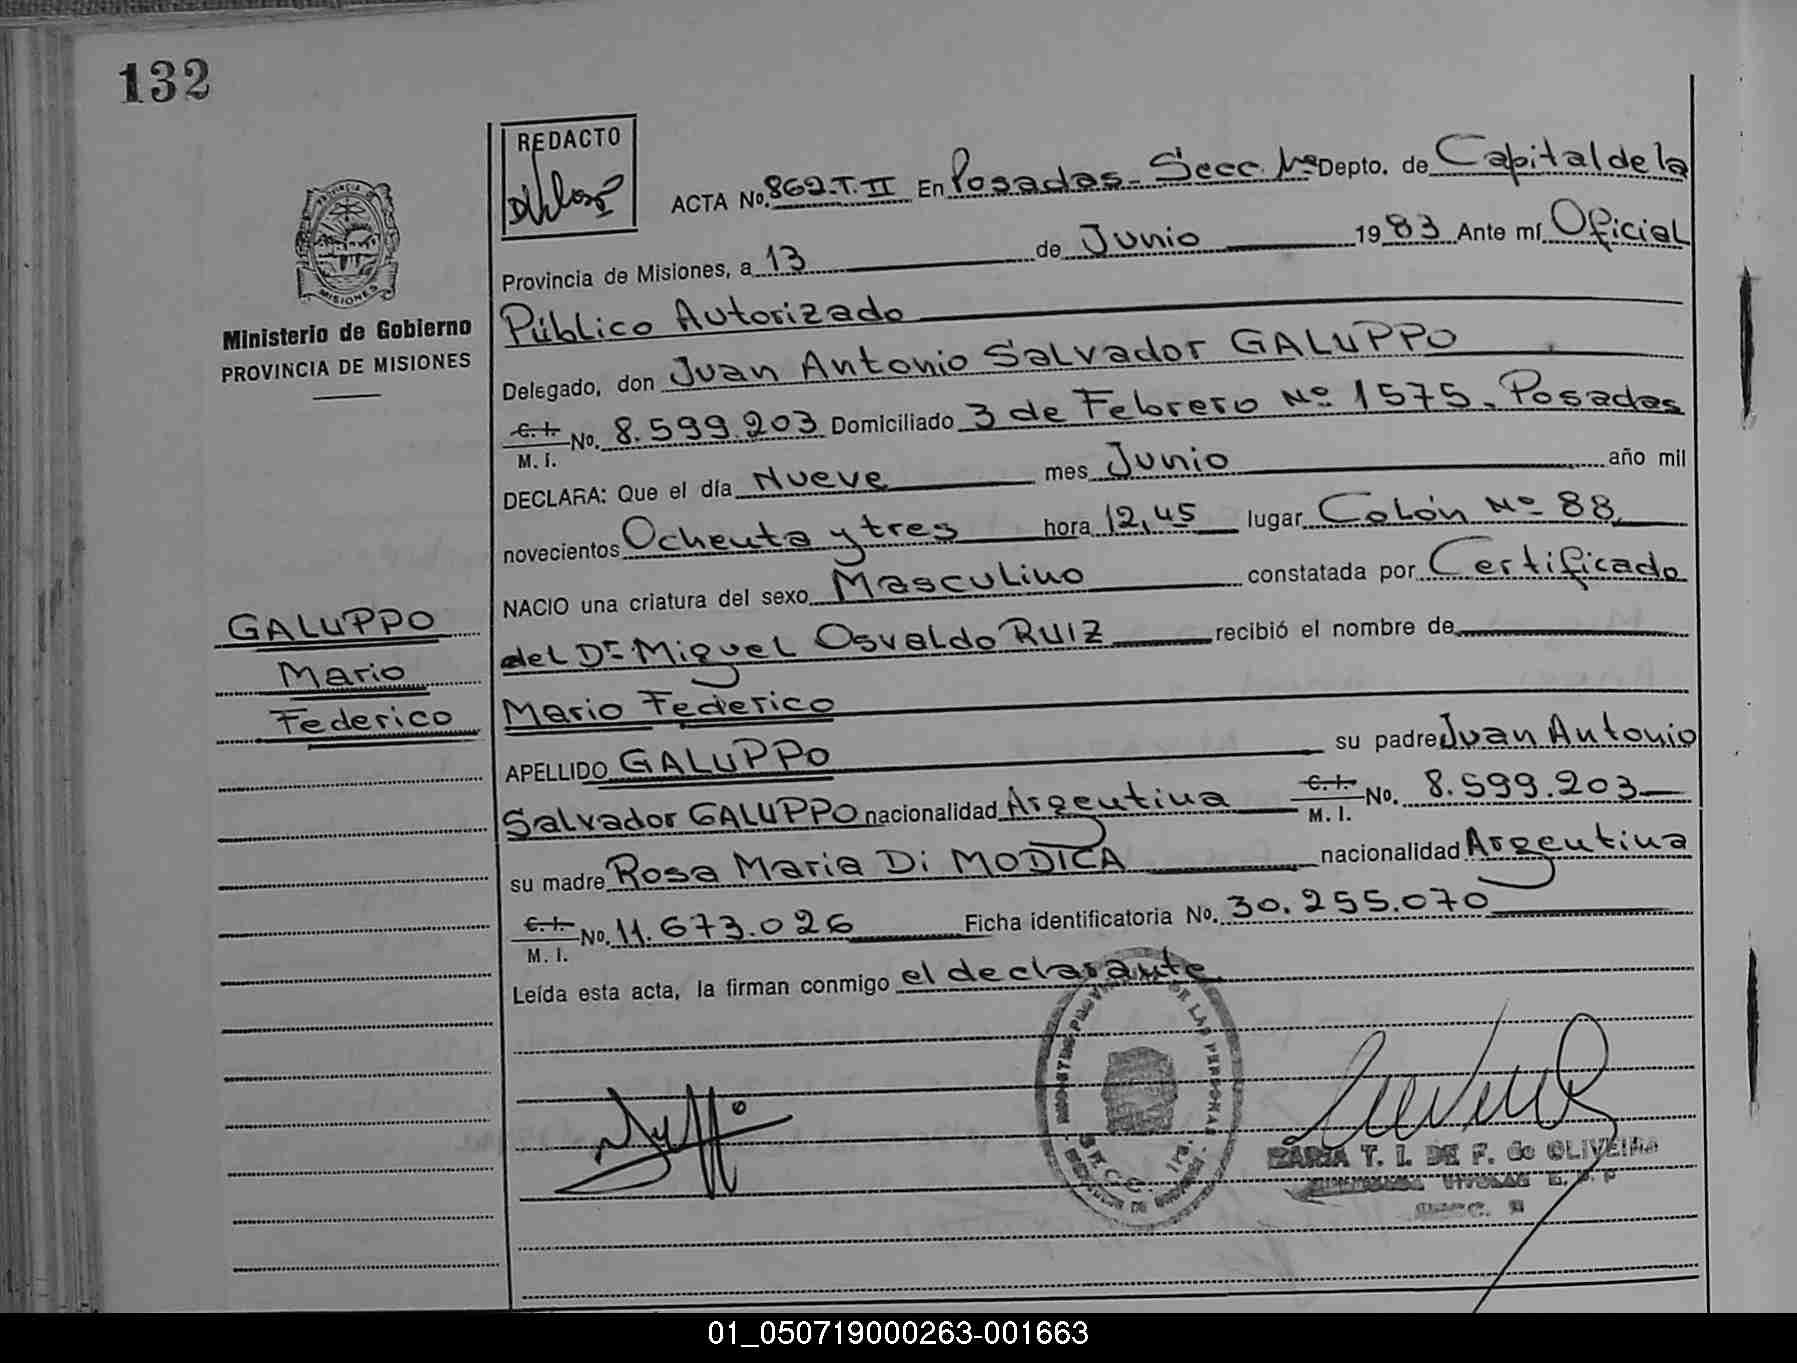 132
REDACTO
ACTA No. 869.T.II En Posadas - Secc. 1ª Depto. de Capital de la
Provincia de Misiones, a 13 de Junio 1983 Ante mí Oficial
Público Autorizado
Delegado, don Juan Antonio Salvador GALUPPO
C. I. No. 8.599.203 Domiciliado 3 de Febrero Nº 1575. Posadas
M. I.
DECLARA: Que el día Nueve mes Junio año mil
novecientos Ochenta y tres hora 12,45 lugar Colón Nº 88
NACIO una criatura del sexo Masculino constatada por Certificado
del Dr. Miguel Osvaldo RUIZ recibió el nombre de
Mario Federico
APELLIDO GALUPPO su padre Juan Antonio
Salvador GALUPPO nacionalidad Argentina C. I. No. 8.599.203
M. I.
su madre Rosa Maria Di MODICA nacionalidad Argentina
C. I. No. 11.673.026 Ficha identificatoria No. 30.255.070
M. I.
Leída esta acta, la firman conmigo el declarante
PROVINCIA DE
MISIONES
Ministerio de Gobierno
PROVINCIA DE MISIONES
GALUPPO
Mario
Federico
DE LAS PERSONAS
SECC. 1ra.
MARIA T. I. DE F. de OLIVEIRA
SECC.
01_050719000263-001663